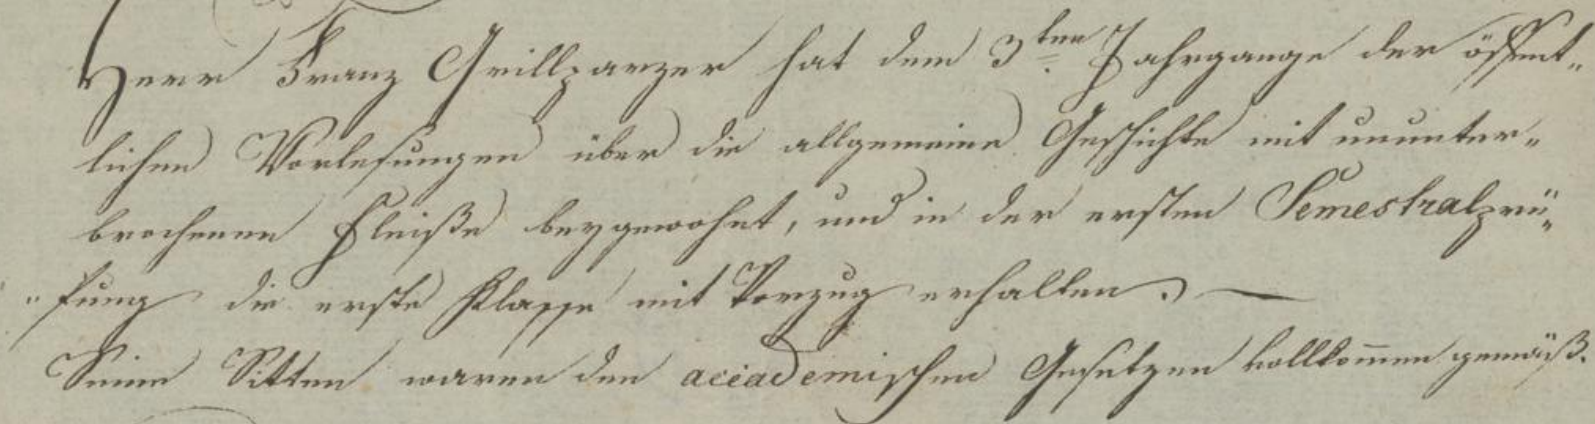 Herr Franz Grillparzer hat dem 3ten Jahrgange der öffent-
lichen Vorlesungen über die allgemeine Geschichte mit ununter-
brochenen Fleiße beygewohnt, und in der ersten Semestralprü-
fung die erste Klasse mit Vorzug erhalten. —
Seine Sitten waren den academischen Gesetzen vollkom̅en gemäß.